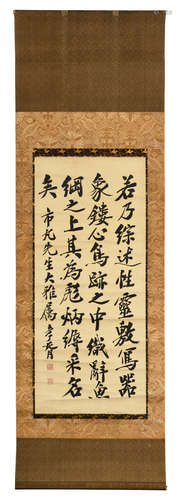 若乃綜述性靈敷寫器
象鏤心鳥跡之中織辭魚
網之上其為彪炳縟采名
矣 市丸先生大雅屬 孝胥